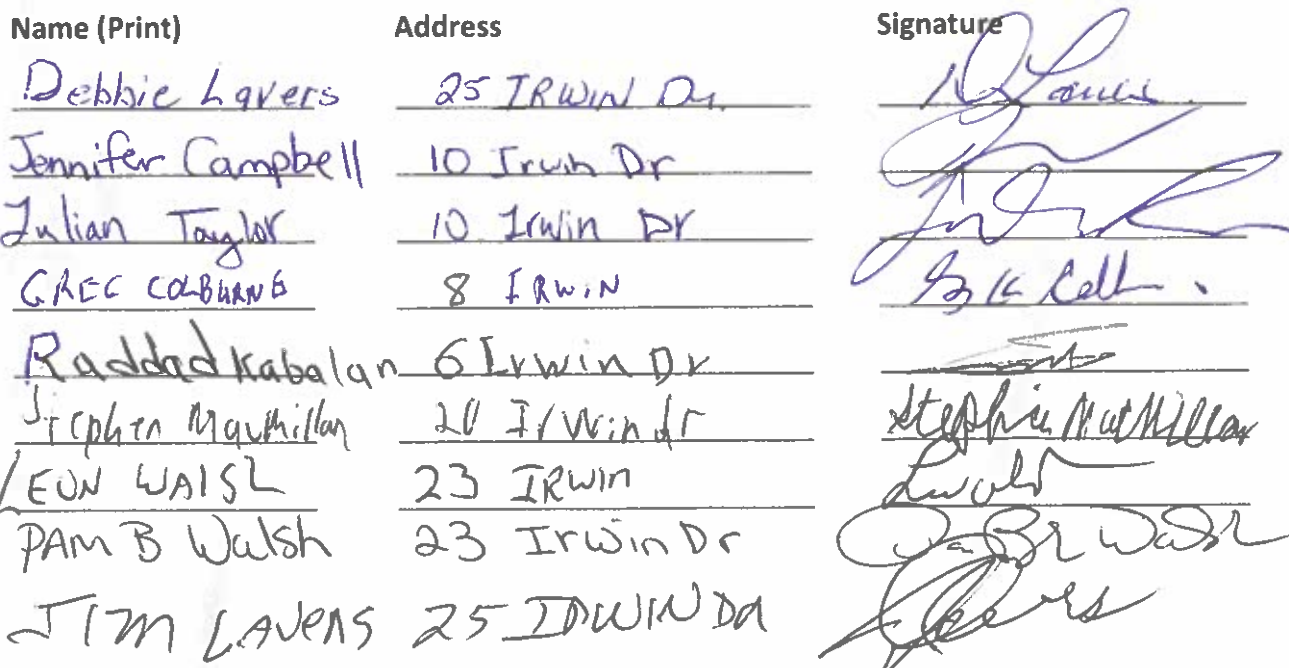 Name (Print) Address Signature
Debbie Lavers 25 IRWIN Dr.
Jennifer Campbell 10 Irwin Dr
Julian Taylor 10 Irwin Dr
GREG COLBURNE 8 IRWIN
Raddad Kabalan 6 Irwin Dr
Stephen MacMillan Irwin dr Stephen MacMillan
LEON WALSh 23 IRWin
PAM B Walsh 23 Irwin Dr Walsh
JIM LAVERS 25 IRWIN DR